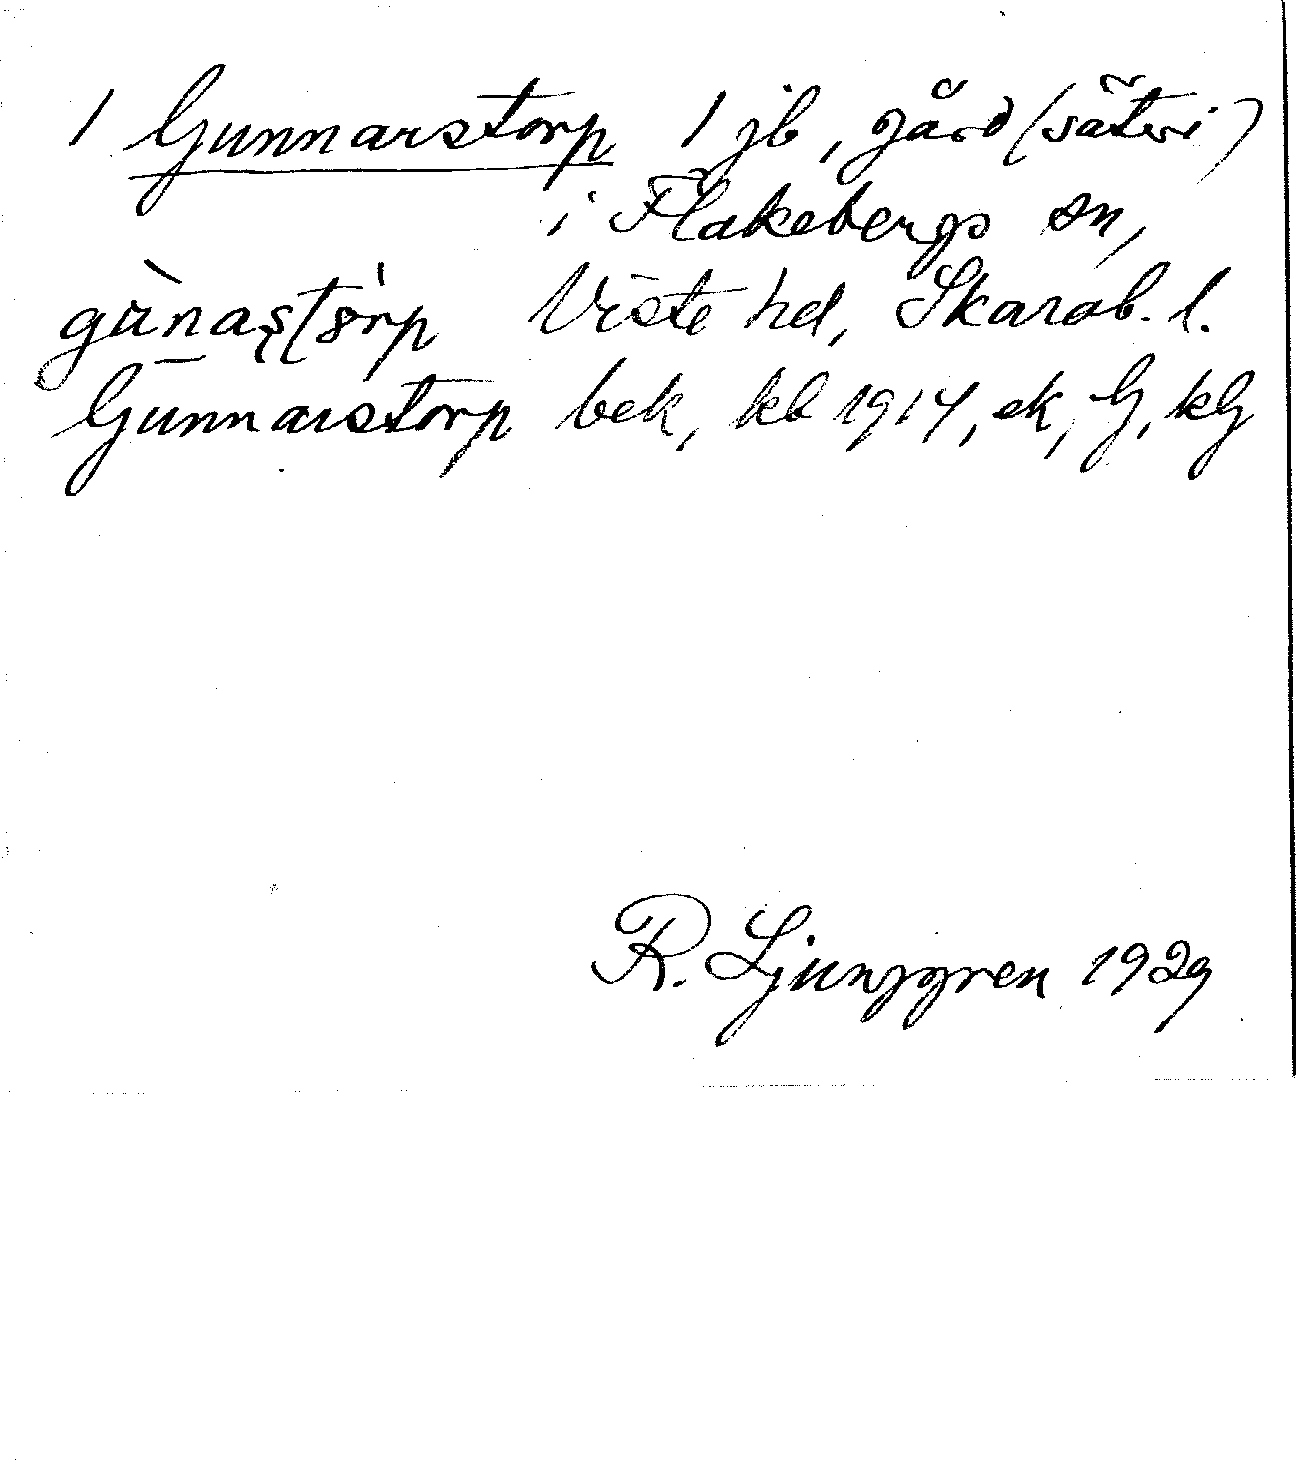 1 Gunnarstorp 1 jb, gård (säteri)
i Flakebergs sn,
Viste hd, Skarab. l.
Gunnarstorp bek, kb 1914, ek, G, kG
R. Ljunggren 1929